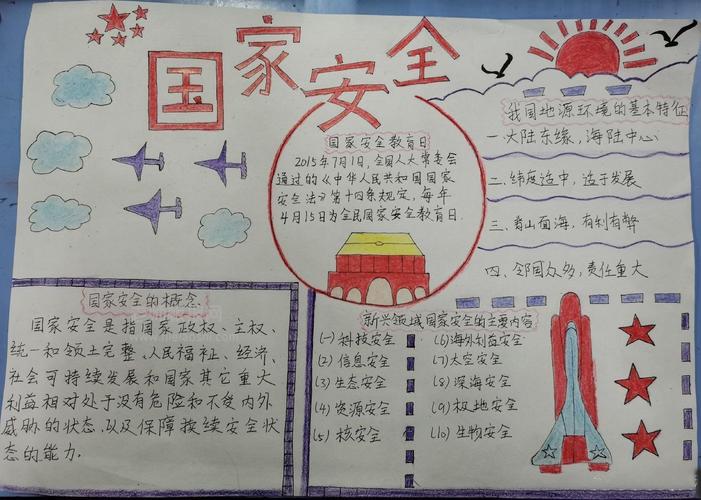 国家安全
国家安全教育日
2015年7月1日,全国人大常委会
通过的《中华人民共和国国家
安全法》第十四条规定,每年
4月15日为全民国家安全教育日.
我国地源环境的基本特征
一、大陆东缘,海陆中心
二、纬度适中,适于发展
三、背山面海,有利有弊
四、邻国众多,责任重大
国家安全的概念
国家安全是指国家政权、主权、
统一和领土完整、人民福祉、经济
社会可持续发展和国家其它重大
利益相对处于没有危险和不受内外
威胁的状态,以及保障持续安全状
态的能力.
新兴领域国家安全的主要内容
(一) 科技安全
(2) 信息安全
(3) 生态安全
(4) 资源安全
(5) 核安全
(6) 海外利益安全
(7) 太空安全
(8) 深海安全
(9) 极地安全
(10) 生物安全